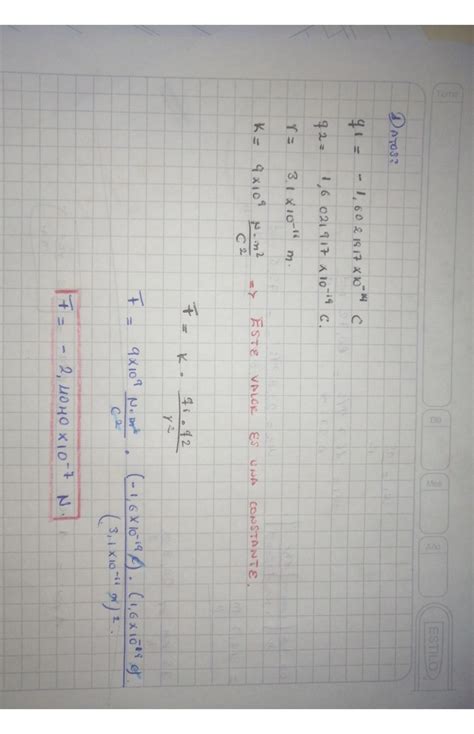 DATOS:
q1 = - 1,6021917x10^-19 C
q2 = 1,6021917x10^-19 C.
r = 3,1x10^-11 m.
K = 9x10^9 N·m^2/C^2 => ESTE VALOR ES UNA CONSTANTE.
F = K · q1·q2/r^2
F = 9x10^9 N·m^2/C^2 · (-1,6x10^-19 C)·(1,6x10^-19 C)/(3,1x10^-11 m)^2.
F = - 2,4040x10^-7 N.
Tema
Día
Mes
Año
ESTILO